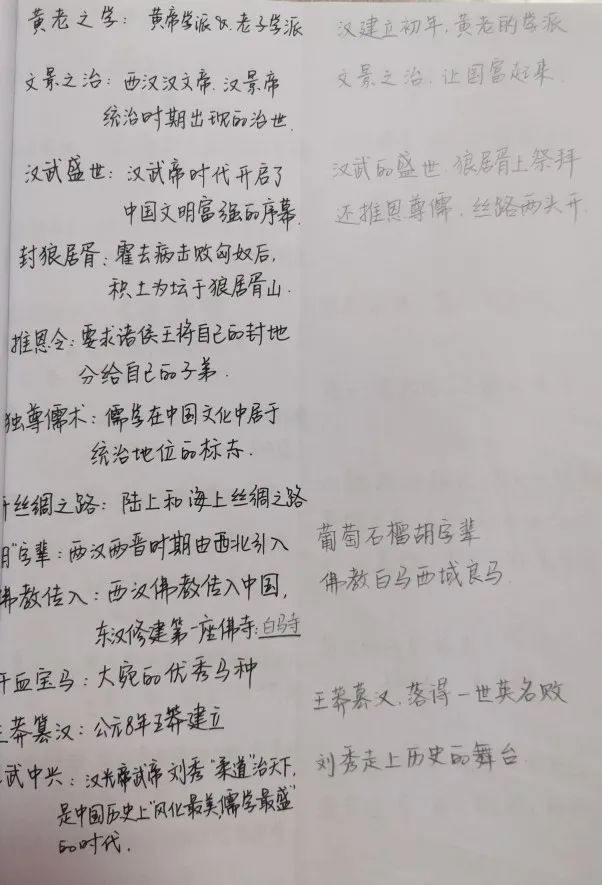 黄老之学：黄帝学派&老子学派
汉建立初年，黄老的学派
文景之治：西汉汉文帝、汉景帝
文景之治，让国富起来
统治时期出现的治世
汉武盛世：汉武帝时代开启了
汉武的盛世，狼居胥上祭拜
中国文明富强的序幕
还推恩尊儒，丝路两头开
封狼居胥：霍去病击败匈奴后，
积土为坛于狼居胥山.
推恩令：要求诸侯王将自己的封地
分给自己的子弟.
独尊儒术：儒学在中国文化中居于
统治地位的标志.
丝绸之路：陆上和海上丝绸之路
葡萄石榴胡字辈
"字辈：两汉两晋时期由西北引入
佛教白马西域良马
佛教传入：西汉佛教传入中国，
东汉修建第一座佛寺:白马寺
血宝马：大宛的优秀马种
王莽慕汉，落得一世英名败
莽篡汉：公元8年王莽建立
刘秀走上历史的舞台
武中兴：汉光帝武帝刘秀"柔道"治天下，
是中国历史上"风化最美，儒学最盛"
的时代.